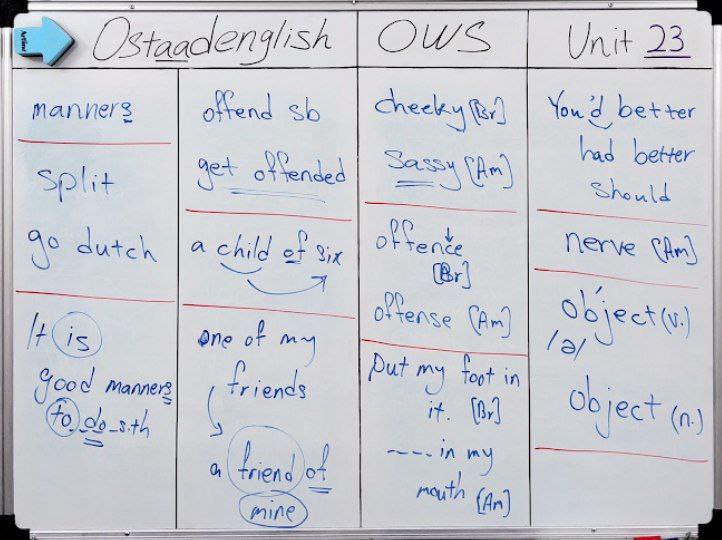 Ostaadenglish
OWS
Unit 23
manners
split
go dutch
It is
good manners
to do s.th
offend sb
get offended
a child of six
one of my
friends
a friend of
mine
cheeky [Br]
Sassy [Am]
offence
[Br]
offense [Am]
put my foot in
it. [Br]
---- in my
mouth [Am]
You'd better
had better
should
nerve [Am]
object (v.)
/ə/
object (n.)